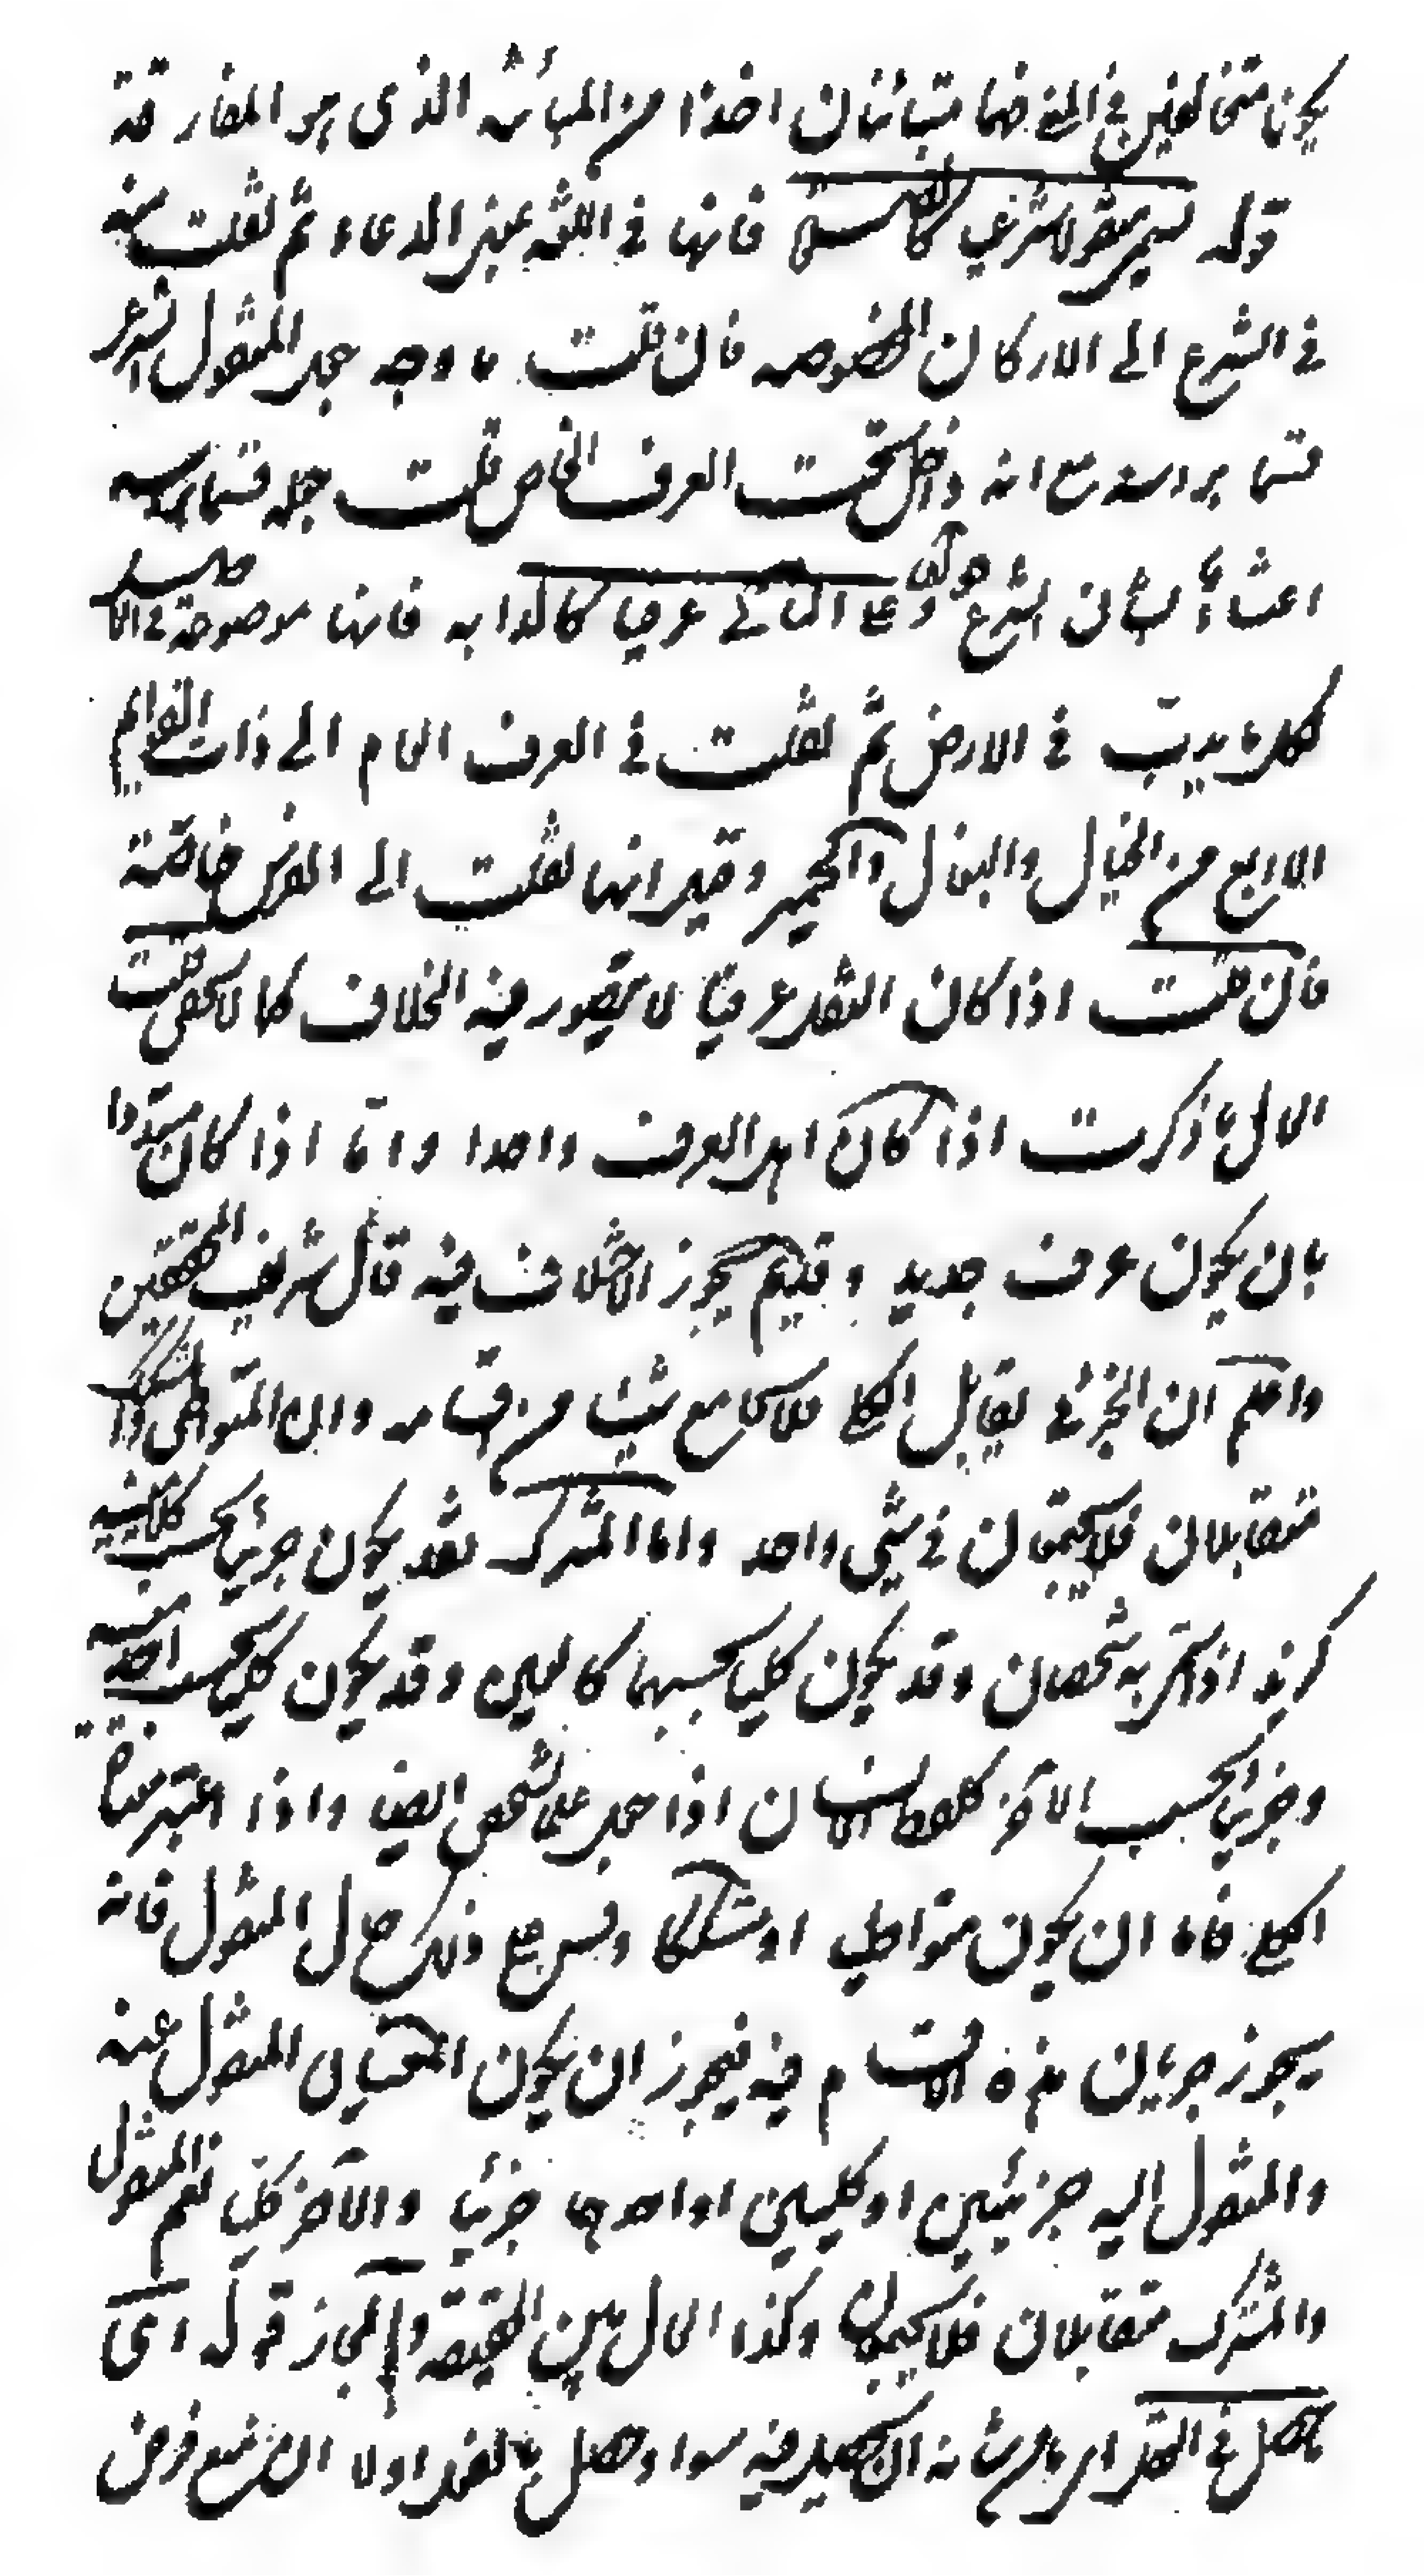 يكون متخالفين في المعنى فهما متبائنان اخذا من المبائنه الذى هو المفارقة
قوله يسمى منقولا شرعيا كالصلوة فانها في اللغة بمعنى الدعاء ثم نقلت منه
في الشرع الى الاركان المخصوصه فان قلت ما وجه جعل المنقول الشرعى
قسما براسه مع انه داخل تحت العرف الخاص قلت جعله قسما براسه
اعتناءً بشان الشرع قوله وعلى الثاني عرفيا كالدابه فانها موضوعة في الاصل
لكل ما يدبّ في الارض ثم نقلت في العرف العام الى ذات القوايم
الاربع من الخيل والبغال والحمير وقيل انها نقلت الى الفرس خاصّة
فان قلت اذا كان النقل عرفيا لا يتصور فيه الخلاف كما لا يخفى قلت
الحال ما ذكرت اذا كان اهل العرف واحدا وامّا اذا كان متعددا
بان يكون عرف جديد و قديم يجوز الاختلاف فيه قال شريف المحققين
واعلم ان الجزئي يقابل الكلى فلا يجامع شيئا من اقسامه وان المتواطى والمشكك
متقابلان فلا يجتمعان في شي واحد واما المشترك فقد يكون جزئيا بحسب كلا معنييه
كزيد اذا سمى به شخصان وقد يكون كليا بحسبهما كالعين وقد يكون كليا بحسب احد معنييه
وجزئيا بحسب الاخر كلفظ الانسان اذا جعل علما لشخص ايضا واذا اعتبر معناه
الكلى فاما ان يكون متواطيا او مشككا وقس على ذلك حال المنقول فانه
يجوز جريان هذه الاقسام فيه فيجوز ان يكون المعنيان المنقول عنه
والمنقول اليه جزئيين او كليين او احدهما جزئيا والاخر كليا نعم المنقول
والمشترك متقابلان فلا يجتمعان وكذا الحال بين الحقيقة والمجاز قوله اى
يحصل في العقل اى ما من شانه ان يحصل فيه سواء حصل بالفعل اولا ان امتنع فرض